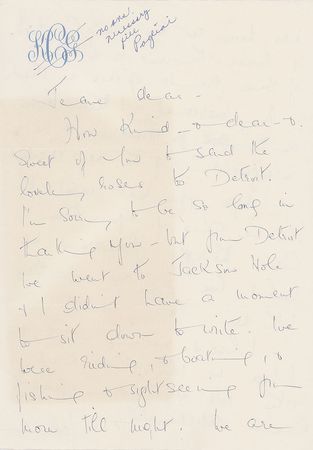 no one
necessary
per
Jeane dear -
How Kind - & dear - &
sweet of you to send the
lovely roses to Detroit.
I'm sorry to be so long in
thanking you - but from Detroit
we went to Jackson Hole
& I didn't have a moment
to sit down to write. We
were riding, & boating, &
fishing & sightseeing from
morn till night. We are